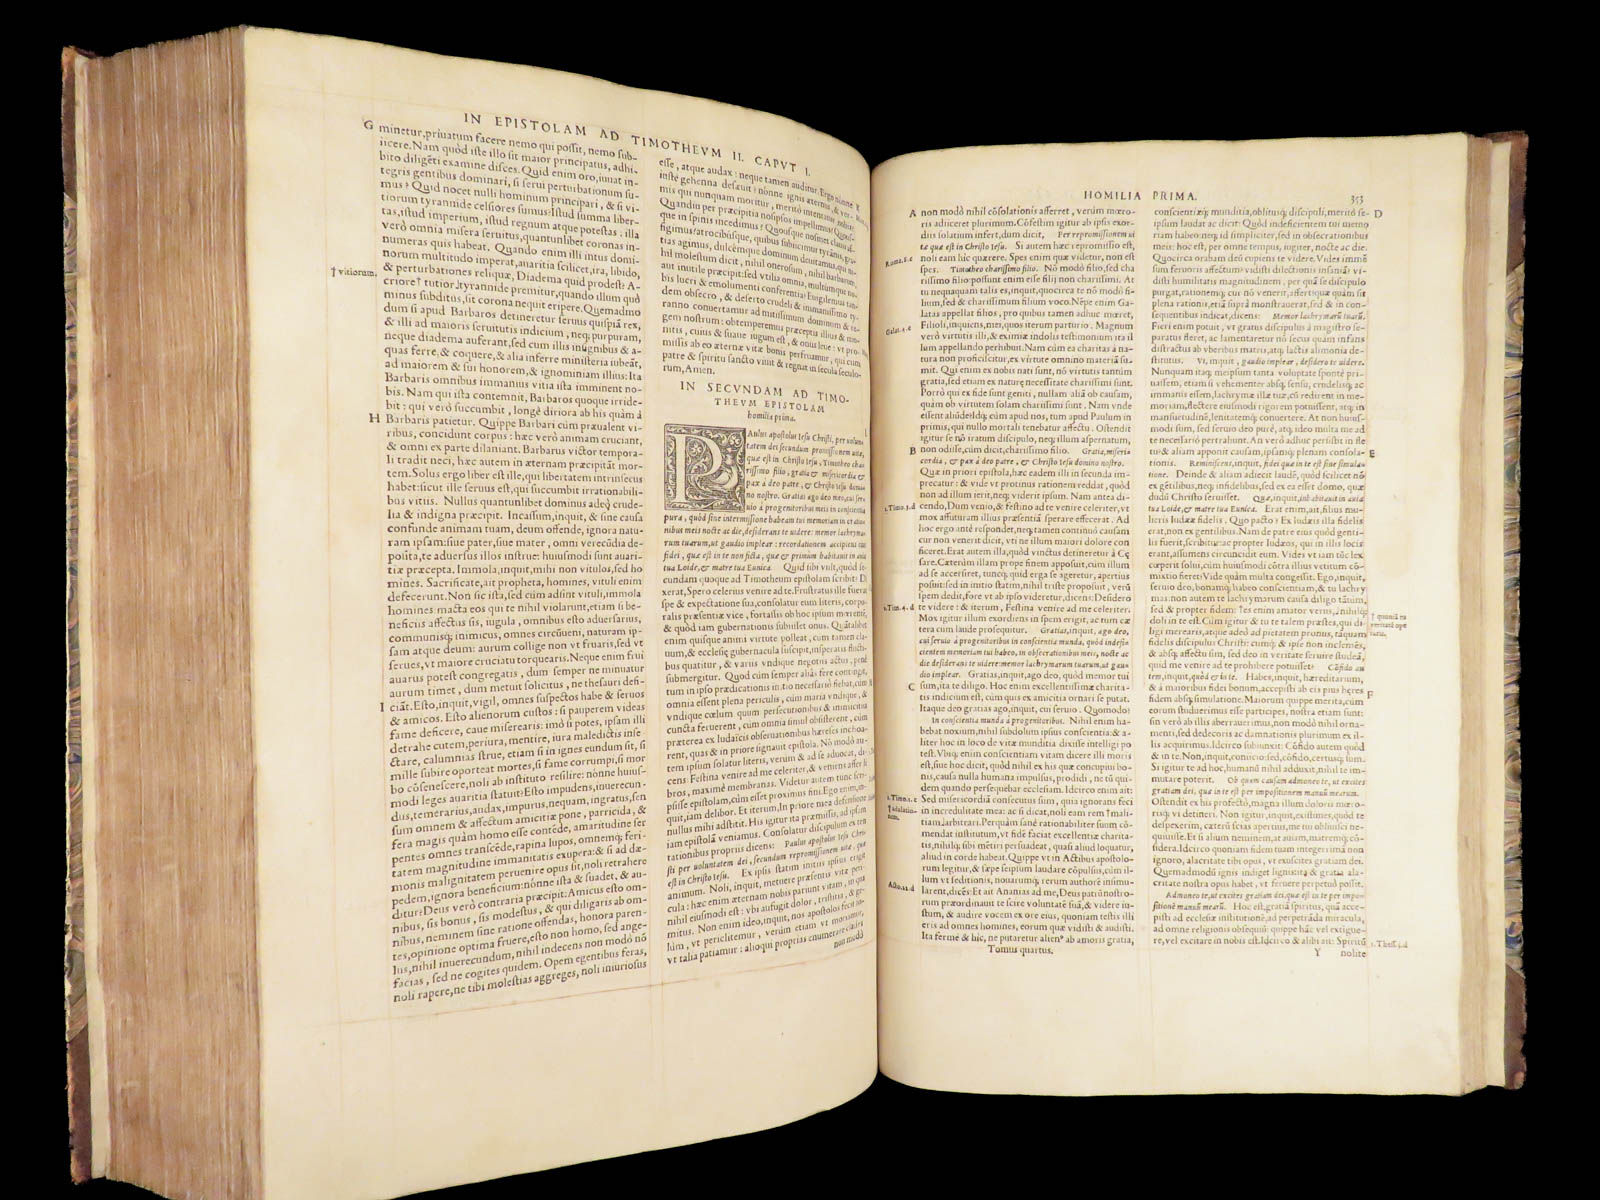 IN EPISTOLAM AD TIMOTHEVM II. CAPVT I.
G minetur, priuatum facere nemo qui possit, nemo sub-
iicere. Nam quòd iste illo sit maior principatus, adhi-
bito diligẽti examine disces. Quid enim oro, iuuat in-
tegris gentibus dominari, si serui perturbationum su-
mus? Quid nocet nulli hominum principari, & si vi-
tiorum tyrannide celsiores sumus? Istud summa liber-
tas, istud imperium, istud regnum atque potestas: illa
verò omnia misera seruitus, quantunlibet coronas in-
numeras quis habeat. Quando enim illi intus domi-
norum multitudo imperat, auaritia scilicet, ira, libido,
† vitiorum.
& perturbationes reliquæ, Diadema quid prodest? A-
criore† tutior, tyrannide premitur, quando illum quò
minus subditus, sit corona nequit eripere. Quemadmo
dum si apud Barbaros detineretur seruus quispiã rex,
& illi ad maioris seruitutis indicium, neq; purpuram,
neque diadema auferant, sed cum illis insignibus & a-
quas ferre, & coquere, & alia inferre ministeria iubeãt,
ad maiorem & sui honorem, & ignominiam illius: Ita
Barbaris omnibus immanius vitia ista imminent no-
bis. Nam qui ista contemnit, Barbaros quoque irride-
bit: qui verò succumbit, longè diriora ab his quàm à
H Barbaris patietur. Quippe Barbari cùm præualent vi-
ribus, concidunt corpus: hæc verò animam cruciant,
& omni ex parte dilaniant. Barbarus victor tempora-
li tradit neci, hæc autem in æternam præcipitãt mor-
tem. Solus ergo liber est ille, qui libertatem intrinsecus
habet: sicut ille seruus est, qui succumbit irrationabili-
bus vitiis. Nullus quantunlibet dominus adeo crude-
lia & indigna præcipit. Incassum, inquit, & sine causa
confunde animam tuam, deum offende, ignora natu-
ram ipsam: siue pater, siue mater, omni verecũdia de-
posita, te aduersus illos instrue: huiusmodi sunt auari-
tiæ præcepta. Immola, inquit, mihi non vitulos, sed ho
mines. Sacrificate, ait propheta, homines, vituli enim
defecerunt. Non sic ista, sed cùm adsint vituli, immola
homines macta eos qui te nihil violarunt, etiam si be-
neficiis affectus sis, iugula, omnibus esto aduersarius,
communisq; inimicus, omnes circũueni, naturam ip-
sam atque deum: aurum collige non vt fruaris, sed vt
serues, vt maiore cruciatu torquearis. Neque enim frui
auarus potest congregatis, dum semper ne minuatur
aurum timet, dum metuit sollicitus, ne thesauri defi-
I ciãt. Esto, inquit, vigil, omnes suspectos habe & seruos
& amicos. Esto alienorum custos: si pauperem videas
fame deficere, caue miserearis: imò si potes, ipsam illi
detrahe cutem, periura, mentire, iura maledictis inse
ctare, calumnias strue, etiam si in ignes eundum sit, si
mille subire oporteat mortes, si fame corrumpi, si mor
bo cõsenescere, noli ab instituto resilire: nónne huius-
modi leges auaritia statuit? Esto impudens, inuerecun-
dus, temerarius, audax, impurus, nequam, ingratus, sen
sum omnem & affectum amicitiæ pone, parricida, &
fera magis quàm homo esse contẽde, amaritudine ser
pentes omnes transcẽde, rapina lupos, omnemq; feri-
tatem magnitudine immanitatis exupera: & si ad dæ-
monis malignitatem peruenire opus sit, noli retrahere
pedem, ignora beneficium: nónne ista & suadet, & au-
ditur? Deus verò contraria præcipit: Amicus esto om-
nibus, sis bonus, sis modestus, & qui diligaris ab om-
nibus, neminem sine ratione offendas, honora paren-
tes, opinione optima fruere, esto non homo, sed ange-
lus, nihil inuerecundum, nihil indecens non modò nõ
facias, sed ne cogites quidem. Opem egentibus feras,
noli rapere, ne tibi molestias aggreges, noli iniuriosus
esse, atque audax: neque tamen auditur. Ergo nónne
iuste gehenna desæuit? nónne ignis æternus, & ver-
mis qui nunquam moritur, meritò intentatus
Quandiu per præcipitia nosipsos impellimus? Quous-
que in spinis incedimus? Quousque nosmet clauis af-
figimus? atrocibusque, quibus subiicimur tyrannis, gra-
tias agimus, dulcémque dominum deuitamus, qui ni-
hil molestum dicit, nihil onerosum, nihil barbarum,
aut inutile præcipit: sed vtilia omnia, multumque no-
bis lucri & emolumenti conferentia? Euigilemus tan-
dem obsecro, & deserto crudeli & immanissimo ty-
ranno conuertamur ad mitissimum dominum & re-
gem nostrum: obtemperemus præceptis illius & mo-
nitis, cuius & suaue iugum est, & onus leue: vt pro-
missis ab eo æternæ vitæ bonis perfruamur, qui cum
patre & spiritu sancto viuit & regnat in secula seculo-
rum, Amen.
IN SECVNDAM AD TIMO-
THEVM EPISTOLAM
homilia prima.
PAulus apostolus Iesu Christi, per volun
tatem dei secundum promissionem vitæ,
quæ est in Christo Iesu, Timotheo cha
rissimo filio, gratia & misericordia &
pax à deo patre, & Christo Iesu domino
no nostro. Gratias ago deo meo, cui ser-
uio à progenitoribus meis in conscientia
pura, quòd sine intermissione habeam tui memoriam in oratio
nibus meis nocte ac die, desiderans te videre: memor lachryma-
rum tuarum, ut gaudio implear: recordationem accipiens eius
fidei, quæ est in te non ficta, quæ & primùm habitauit in auia
tua Loide, & matre tua Eunica. Quid sibi vult, quòd se-
cundam quoque ad Timotheum epistolam scribit? Di
xerat, Spero celerius venire ad te. Frustratus ille fuerat
spe & expectatione sua, consolatur eum literis, corpo-
ralis præsentiæ vice, fortassis ob hoc ipsum mœrentẽ,
& quòd iam gubernationis subiisset onus. Quãtùlibet
enim quisque animi virtute polleat, cum tamen cla-
uum, & ecclesię gubernacula suscipit, insperatis flucti-
bus quatitur, & variis vndique negotiis actus, penè
submergitur. Quod cùm semper aliàs fere contingit,
tum in ipso prædicationis initio necessariò fiebat, cùm
omnia essent plena periculis, cùm maria vndique, &
vndique cœlum quum persecutionibus & inimicitiis
cuncta feruerent, cùm omnia simul obsisterent, cùm
præterea ex Iudaicis obseruationibus hæreses inchoa-
rent, quas & in priore signauit epistola. Nõ modò au-
tem ipsum solatur literis, verùm & ad se aduocat, di-
cens: Festina venire ad me celeriter, & veniens affer li
bros, maximè membranas. Videtur autem tunc scri-
psisse epistolam, cùm esset proximus fini. Ego enim, in-
quit, iam delibor. Et iterum, In priore mea defensione
nullus mihi adstitit. His igitur ita præmissis, ad ipsam
iam epistolã veniamus. Consolatur discipulum ex ten
tationibus propriis dicens: Paulus apostolus Iesu Chri-
sti per voluntatem dei, secundum repromissionem uitæ, quæ
est in Christo Iesu. Ex ipsi statim initiis ipsius erigit
animum. Noli, inquit, metuere præsentis vitæ peri-
cula: hæc enim æternam nobis pariunt vitam, in qua
nihil eiusmodi est: vbi aufugit dolor, tristitia, & ge-
mitus. Non enim ideo, inquit, nos apostolos fecit so-
lùm, vt periclitemur, verùm etiam vt moriamur,
vt talia patiamur: alioqui proprias enumerare clades
non modò
HOMILIA PRIMA. 353
A non modò nihil cõsolationis afferret, verùm mœro-
ris adiiceret plurimum. Cõfestim igitur ab ipsis exor-
diis solatium infert, dum dicit, Per repromissionem ui
tæ quæ est in Christo Iesu. Si autem hæc repromissio est,
Roma. 8. e
noli eam hic quærere. Spes enim quæ videtur, non est
spes. Timotheo charissimo filio. Nõ modò filio, sed cha
rissimo filio: possunt enim esse filij non charissimi. At
tu nequaquam talis es, inquit, quocirca te nõ modò fi-
lium, sed & charissimum filium voco. Nẽpe enim Ga-
latas appellat filios, pro quibus tamen adhuc mœret,
Galat. 4. c
Filioli, inquiens, mei, quos iterum parturio. Magnum
verò virtutis illi, & eximiæ indolis testimonium ita il
lum appellando perhibuit. Nam cùm ea charitas à na-
tura non proficiscitur, ex virtute omnino materiã su-
mit. Qui enim ex nobis nati sunt, nõ virtutis tantùm
gratia, sed etiam ex naturę necessitate charissimi sunt.
Porrò qui ex fide sunt geniti, nullam aliã ob causam,
quàm ob virtutem solam charissimi sunt. Nam vnde
essent aliũde? Idq; cùm apud nos, tum apud Paulum in
primis, qui nullo mortali tenebatur affectu. Ostendit
igitur se nõ iratum discipulo, neq; illum aspernatum,
B non odisse, cùm dicit, charissimo filio. Gratia, miseri-
cordia, & pax à deo patre, & Christo Iesu domino nostro.
Quæ in priori epistola, hæc eadem illi in secunda im-
precatur: & vide vt protinus rationem reddat, quòd
non ad illum ierit, neq; viderit ipsum. Nam antea di-
1. Timo. 3. d
cendo, Dum venio, & festino ad te venire celeriter, vt
mox affuturam illius præsentiã sperare effecerat. Ad
hoc ergo antè respondet, neq; tamen continuò causam
cur non venerit dicit, vti ne illum maiori dolore con
ficeret. Erat autem illa, quòd vinctus detineretur à Cę
sare. Cæterùm illam prope finem apposuit, cùm illum
ad se accersiret, tuncq; quid erga se ageretur, apertius
posuit: sed in initio statim, nihil triste proposuit, verũ
spem dedit, fore vt ab ipso videretur, dicens: Desidero
1. Tim. 4. d
te videre: & iterum, Festina venire ad me celeriter.
Mox igitur illum exordiens in spem erigit, ac tum cæ
tera cum laude prosequitur. Gratias, inquit, ago deo,
cui seruio à progenitoribus in conscientia munda, quòd indefi-
cientem memoriam tui habeo, in obsecrationibus meis, nocte ac
die desiderans te uidere: memor lachrymarum tuarum, ut gau-
dio implear. Gratias, inquit, ago deo, quòd memor tui
C sum, ita te diligo. Hoc enim excellentissimæ charita-
tis indicium est, cùm quis ex amicitia ornari se putat.
Itaque deo gratias ago, inquit, cui seruio. Quomodo?
In conscientia munda à progenitoribus. Nihil enim ha-
bebat noxium, nihil subdolum ipsius conscientia: & a-
liter hoc in loco de vitæ munditia dixisse intelligi po
test. Vbiq; enim conscientiam vitam dicere illi moris
est, siue hoc dicit, quòd nihil ex his quæ concupiui bo-
nis, causa nulla humana impulsus, prodidi, ne tũ qui-
dem quando persequebar ecclesiam. Idcirco enim ait:
1. Timo. 1. c
Sed misericordiã consecutus sum, quia ignorans feci
in incredulitate mea: ac si dicat, noli eam rem †mali-
tiam, arbitrari. Perquàm sanè rationabiliter suum cõ-
mendat institutum, vt fidẽ faciat excellentiæ charita-
tis, nihilq; sibi mẽtiri persuadeat, quasi aliud loquatur,
aliud in corde habeat. Quippe vt in Actibus apostolo-
rum legitur, & sæpe seipsum laudare cõpulsus, cùm il-
lum vt seditionis, nouarumq; rerum authorẽ insimu-
Acto. 22. d
larent, dicẽs: Et ait Ananias ad me, Deus patrũ nostro-
rum præordinauit te scire voluntatẽ suã, & videre iu-
stum, & audire vocem ex ore eius, quoniam testis illi
eris ad omnes homines, eorum quæ vidisti & audisti.
Ita fermè & hîc, ne putaretur alienus ab amoris gratia,
Tomus quartus.
conscientiæq; munditia, oblitusq; discipuli, meritò se- D
ipsum laudat ac dicit: Quòd indeficientem tui memo
riam habeo: neq; id simpliciter, sed in obsecrationibus
meis: hoc est, per omne tempus, iugiter, nocte ac die.
Quocirca orabam deũ cupiens te videre. Vides immẽ
sum feruoris affectum? vidisti dilectionis insaniã? vi-
disti humilitatis magnitudinem, per quã se discipulo
purgat, rationemq; cur nõ venerit, affert: quàm sit
plena rationis, etiã suprà monstrauerat, sed & in con-
sequentibus indicat, dicens: Memor lachrymarũ tuarũ.
Fieri enim potuit, vt gratus discipulus à magistro se-
paratus fleret, ac lamentaretur nõ secus quàm infans
distractus ab vberibus matris, atq; lactis alimonia de-
stitutus. Vt, inquit, gaudio implear, desidero te uidere.
Nunquam itaq; meipsum tanta voluptate sponte pri-
uassem, etiam si vehementer absq; sensu, crudelisq; ac
immanis essem, lachrymæ illæ tuæ, cũ redirent in me-
moriam, flectere eiusmodi rigorem potuissent, atq; in
mansuetudinẽ, lenitatemq; conuertere. At non huius-
modi sum, sed seruio deo purè, atq; ideo multa me ad
te necessariò pertrahunt. An verò adhuc persistit in fle
tu: & aliam apponit causam, ipsamq; plenam consola- E
tionis. Reminiscens, inquit, fidei quæ in te est sine simula-
tione. Deinde & aliam adiecit laudẽ, quòd scilicet nõ
ex gẽtilibus, neq; infidelibus, sed ex ea esset domo, quæ
dudũ Christo seruisset. Quæ, inquit, inhabitauit in auia
tua Loide, & matre tua Eunica. Erat enim, ait, filius mu-
lieris Iudææ fidelis. Quo pacto? Ex Iudæis illa fidelis
erat, non ex gentilibus. Nam de patre eius quòd genti-
lis fuerit, scribitur: ac propter Iudæos, qui in illis locis
erant, assumens circuncidit eum. Vides vt iam tũc lex
cœperit solui, cùm huiusmodi cõtra illius vetitum cõ-
mixtio fieret? Vide quàm multa congessit. Ego, inquit,
seruio deo, bonamq; habeo conscientiam, & tu lachry
mas non autem te lachrymarum causa diligo tãtùm,
† quoniã tu
veritatẽ ope
raris.
sed & propter fidem: †es enim amator veri, nihilq;
doli in te est. Cùm igitur & tu te talem præstes, qui di-
ligi merearis, atque adeò ad pietatem pronus, tãquam
fidelis discipulus Christi: cumq; & ipse non inclemẽs,
& absq; affectu sim, sed deo in veritate seruire studeã,
quid me venire ad te prohibere potuisset? Cõfido au
tem, inquit, quòd & in te. Habes, inquit, hæreditarium,
& à maioribus fidei bonum, accepisti ab eis pius hęres F
fidem absq; simulatione. Maiorum quippe merita, cùm
eorum studuerimus esse participes, nostra etiam sunt:
sin verò ab illis aberrauerimus, non modò nihil orna-
menti, sed dedecoris ac damnationis plurimum ex il-
lis acquirimus. Idcirco subiunxit: Cõfido autem quòd
& in te. Non, inquit, coniicio: sed, cõfido, certusq; sum.
Si igitur te ad hoc, humanũ nihil adduxit, nihil te im-
mutare poterit. Ob quam causam admoneo te, ut excites
gratiam dei, quæ in te est per impositionem manuũ mearum.
Ostendit ex his profectò, magna illum doloris mœro-
risq; vi detineri. Non igitur, inquit, existimes, quòd te
despexerim, cæterũ scias apertius, me tui obliuisci ne-
quiuisse. Et si alium neminem, at auiam, matremq; cõ-
sidera. Idcirco quoniam fidem tuam integerrimã non
ignoro, alacritate tibi opus, vt exuscites gratiam dei.
Quemadmodũ ignis indiget lignis: ita & gratia ala-
critate nostra opus habet, vt feruere perpetuò possit.
Admoneo te, ut excites gratiam dei, quæ est in te per impo-
sitionẽ manuũ mearũ. Hoc est, gratiã spiritus, quã acce-
pisti ad ecclesiæ institutionẽ, ad perpetrãda miracula,
ad omne religionis obsequiũ: quippe hãc vel extigue-
re, vel excitare in nobis est. Idcirco & alibi ait: Spiritũ
1. Thess. 5. d
Y nolite